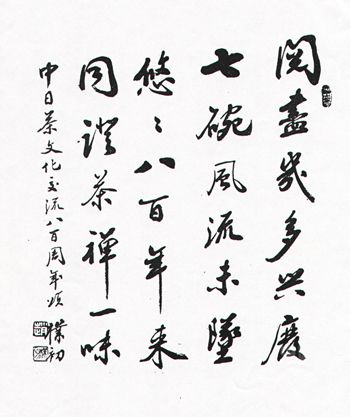 阅尽几多兴废
七碗风流未坠
悠〻八百年来
同证茶禅一味
中日茶文化交流八百周年颂 朴初